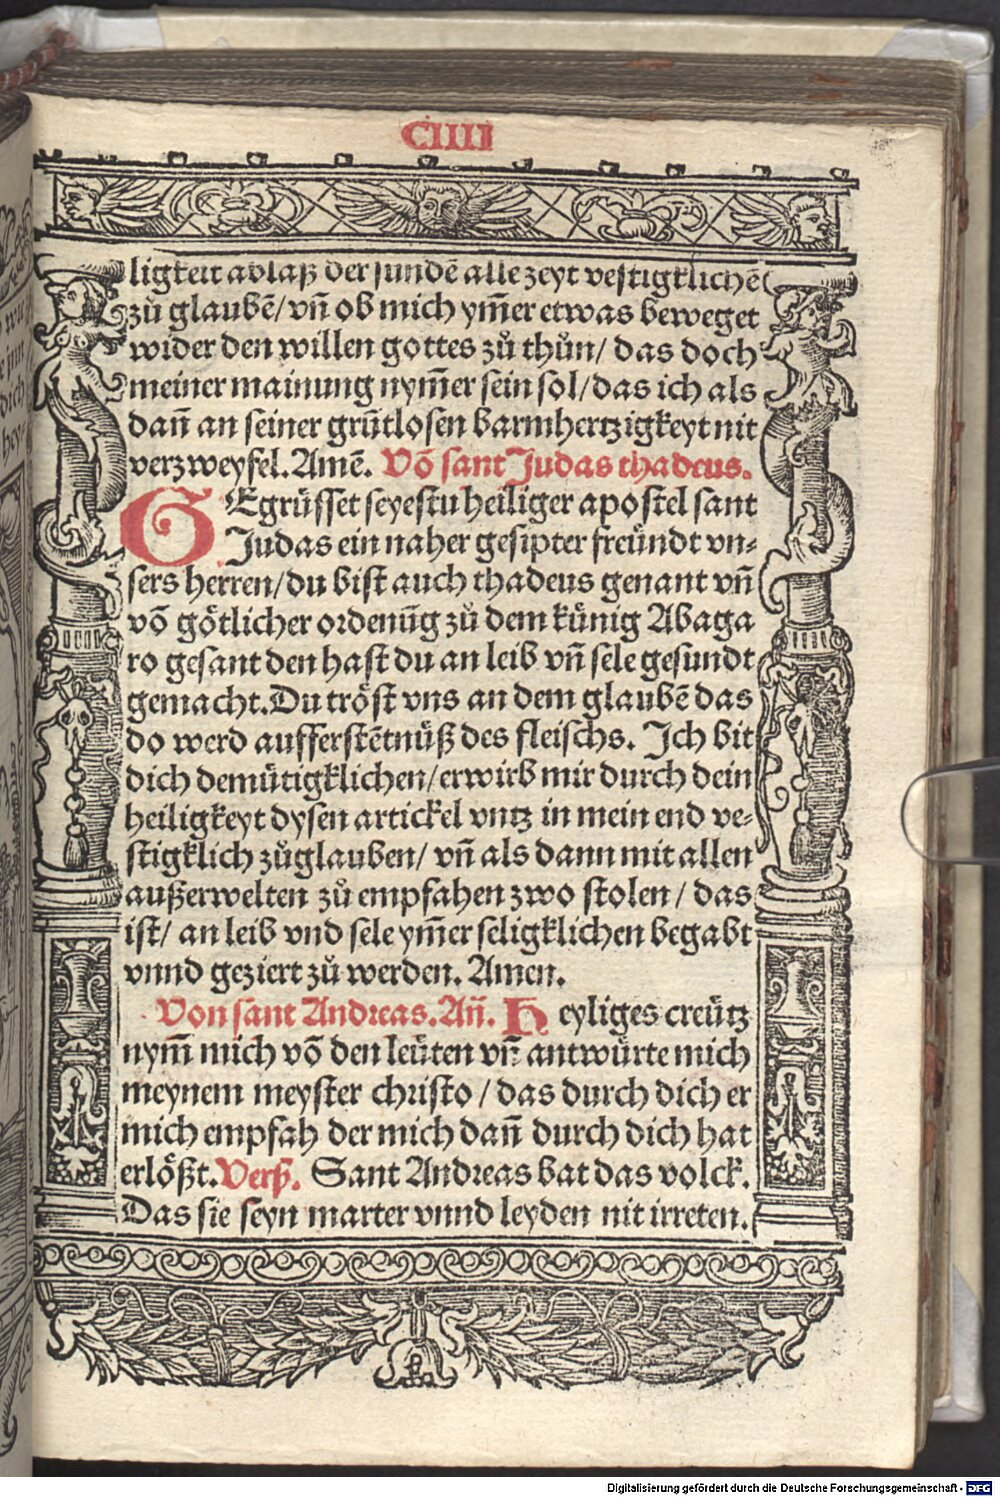 CIIII
ligkeit ablaß der sundē alle zeyt vestigklichē
zů glaubē/ vñ ob mich ym̃er etwas beweget
wider den willen gottes zů thůn/ das doch
meiner mainung nym̃er sein sol/ das ich als
dañ an seiner grūtlosen barmhertzigkeyt nit
verzweyfel. Amē. Võ sant Judas thadeus.
GEgrüsset seyestu heiliger apostel sant
Judas ein naher gesipter freündt vn⸗
sers herren/ du bist auch thadeus genant vñ
võ götlicher ordenūg zů dem künig Abaga
ro gesant den hast du an leib vñ sele gesundt
gemacht. Du tröst vns an dem glaubē das
do werd aufferstētnüß des fleischs. Ich bit
dich demütigklichen/ erwirb mir durch dein
heiligkeyt dysen artickel vntz in mein end ve⸗
stigklich zůglauben/ vñ als dann mit allen
außerwelten zů empfahen zwo stolen/ das
ist/ an leib vnd sele ym̃er seligklichen begabt
vnnd geziert zů werden. Amen.
Von sant Andreas. Añ. Heyliges creütz
nym̃ mich võ den leüten vñ antwürte mich
meynem meyster christo/ das durch dich er
mich empfah der mich dañ durch dich hat
erlößt. Verß. Sant Andreas bat das volck.
Das sie seyn marter vnnd leyden nit irreten.
Digitalisierung gefördert durch die Deutsche Forschungsgemeinschaft - DFG